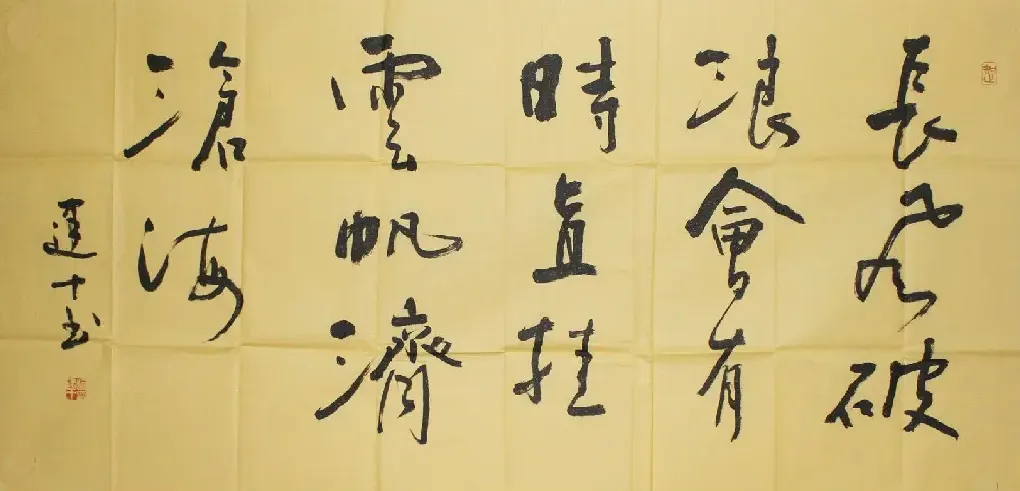 長風破
浪會有
時直挂
雲帆濟
滄海
蓮十书